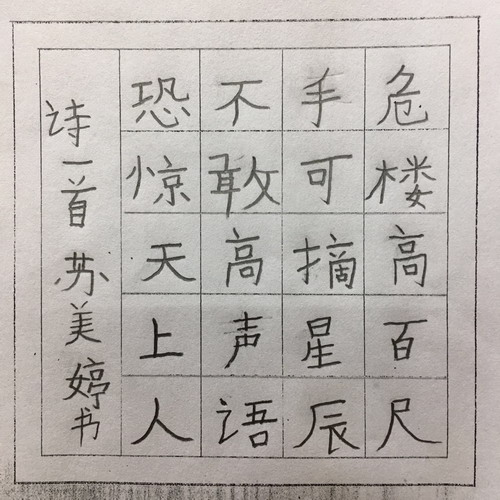 危楼高百尺
手可摘星辰
不敢高声语
恐惊天上人
诗一首 苏美婷书